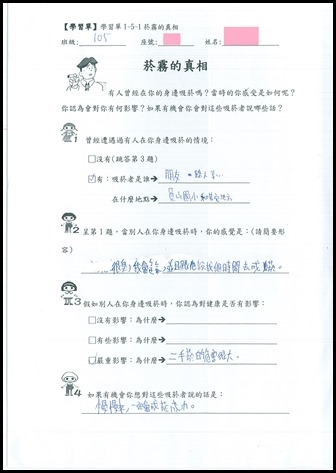 【學習單】學習單1-5-1菸霧的真相
班級：105 座號： 姓名：
菸霧的真相
有人曾經在你的身邊吸菸嗎？當時的你感受是如何呢？
你認為會對你有何影響？如果有機會你會對這些吸菸者說哪些話？
1 曾經遭遇過有人在你身邊吸菸的情境：
□沒有(跳答第3題)
☑有：吸菸者是誰→ 朋友、
在什麼地點→
2 呈第1題，當別人在你身邊吸菸時，你的感覺是：(請簡要形
容)
很臭,我會
3 假如別人在你身邊吸菸時，你認為對健康是否有影響：
□沒有影響：為什麼→
□有些影響：為什麼→
☑嚴重影響：為什麼→ 二手菸的危害很大。
4 如果有機會你想對這些吸菸者說的話是：
慢慢來,一定會戒菸成功。